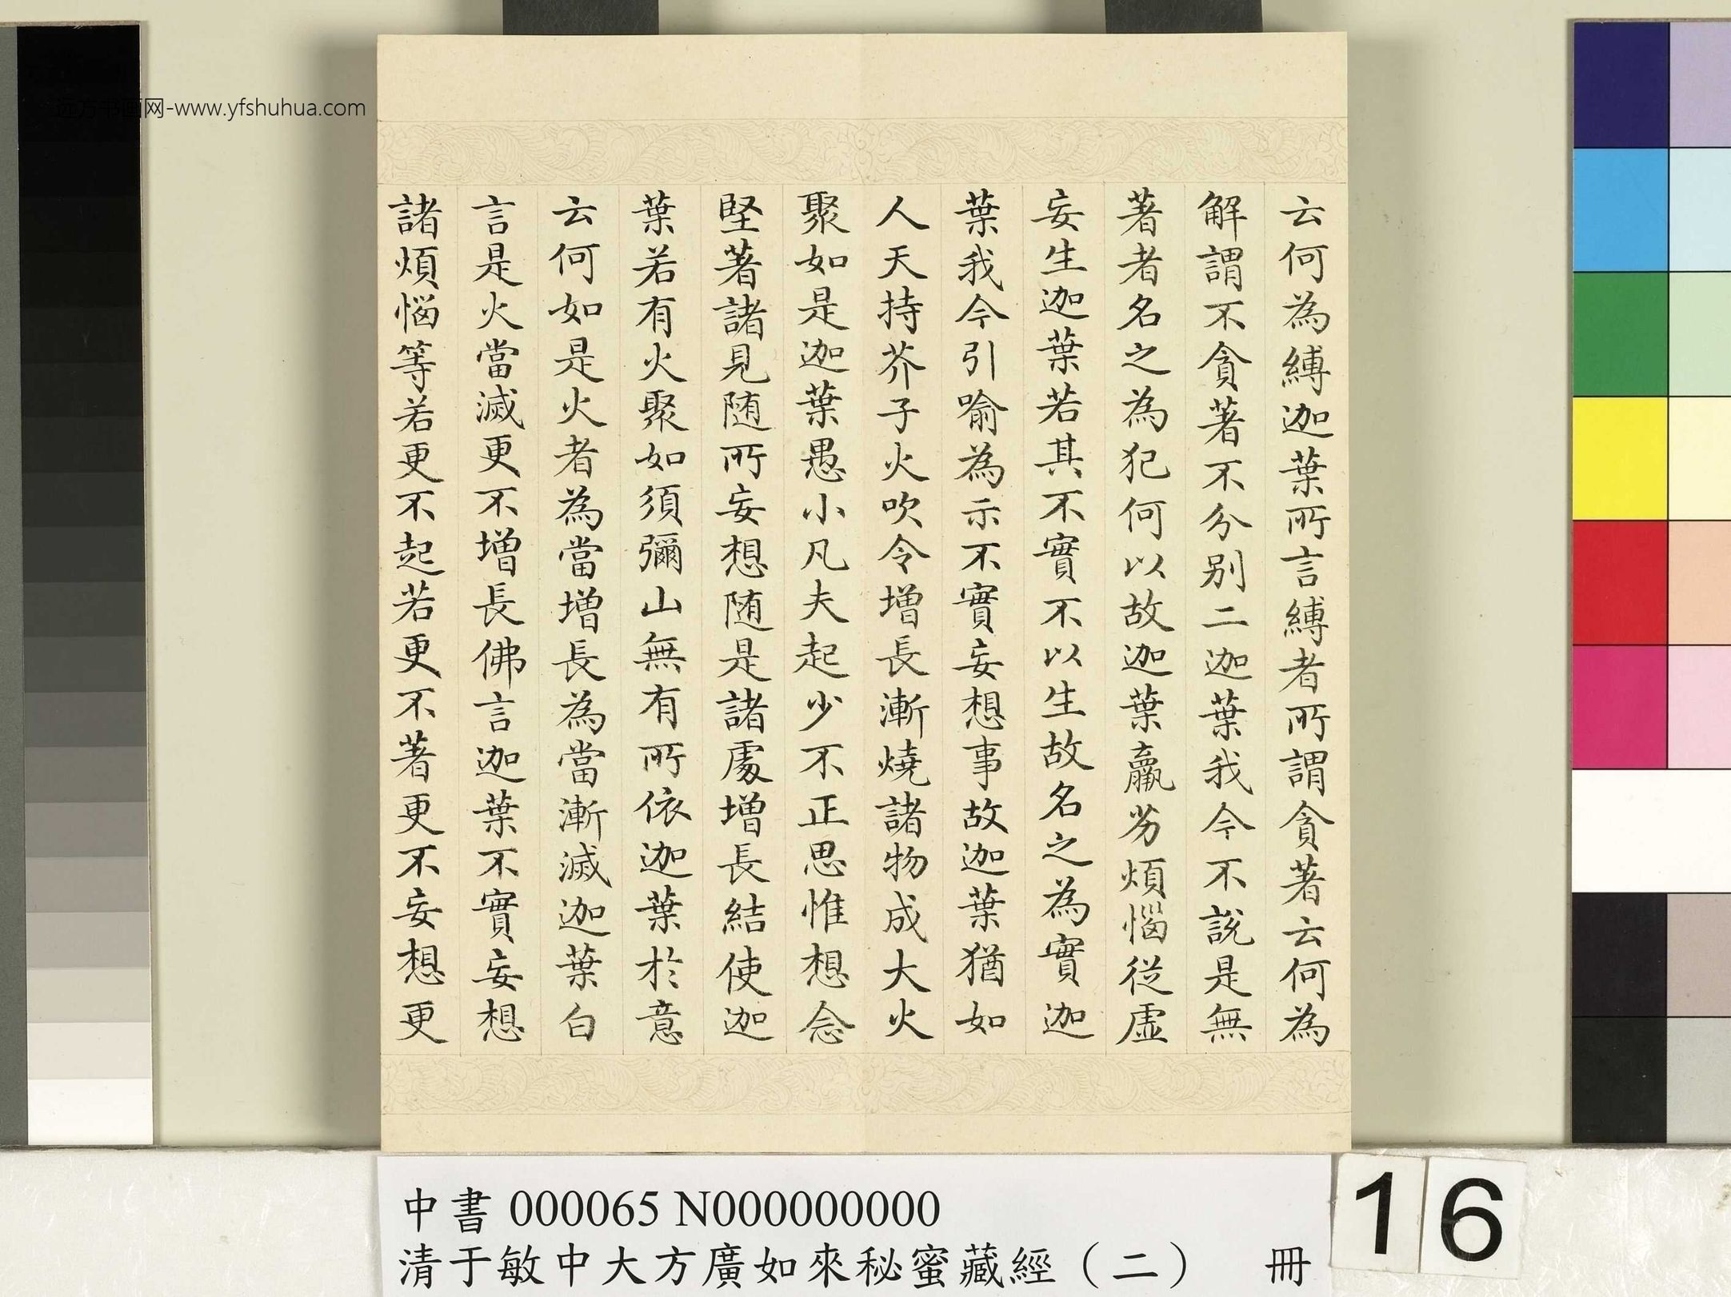 云何為縛迦葉所言縛者所謂貪著云何為
解謂不貪著不分别二迦葉我今不說是無
著者名之為犯何以故迦葉羸劣煩惱從虛
妄生迦葉若其不實不以生故名之為實迦
葉我今引喻為示不實妄想事故迦葉猶如
人天持芥子火吹令增長漸燒諸物成大火
聚如是迦葉愚小凡夫起少不正思惟想念
堅著諸見随所妄想随是諸處增長結使迦
葉若有火聚如須彌山無有所依迦葉於意
云何如是火者為當增長為當漸滅迦葉白
言是火當滅更不增長佛言迦葉不實妄想
諸煩惱等若更不起若更不著更不妄想更
远方书画网-www.yfshuhua.com
中書 000065 N000000000
清于敏中大方廣如來秘蜜藏經（二） 冊
16